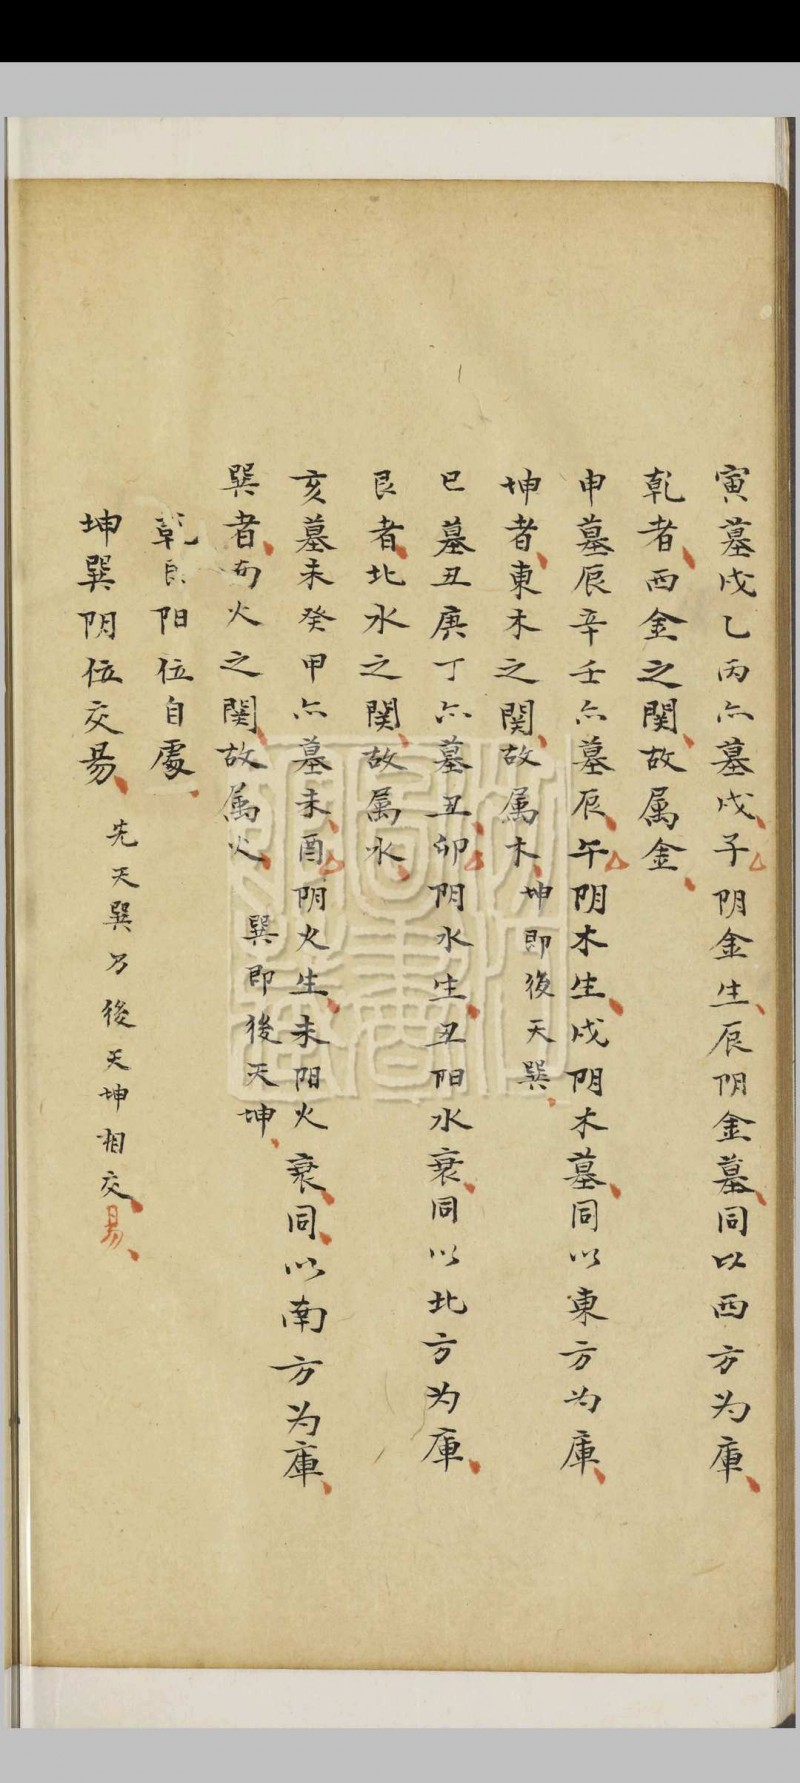 寅墓戍乙丙亦墓戍子阴金生辰阴金墓同以西方为庫
乾者西金之関故属金
申墓辰辛壬亦墓辰午阴木生戍阴木墓同以東方为庫
坤者東木之関故属木 坤即後天巽
巳墓丑庚丁亦墓丑卯阴水生丑阳水衰同以北方为庫
艮者北水之関故属水
亥墓未癸甲亦墓未酉阴火生未阳火衰同以南方为庫
巽者南火之関故属火 巽即後天坤
乾艮阳位自處
坤巽阴位交易 先天巽乃後天坤相交易